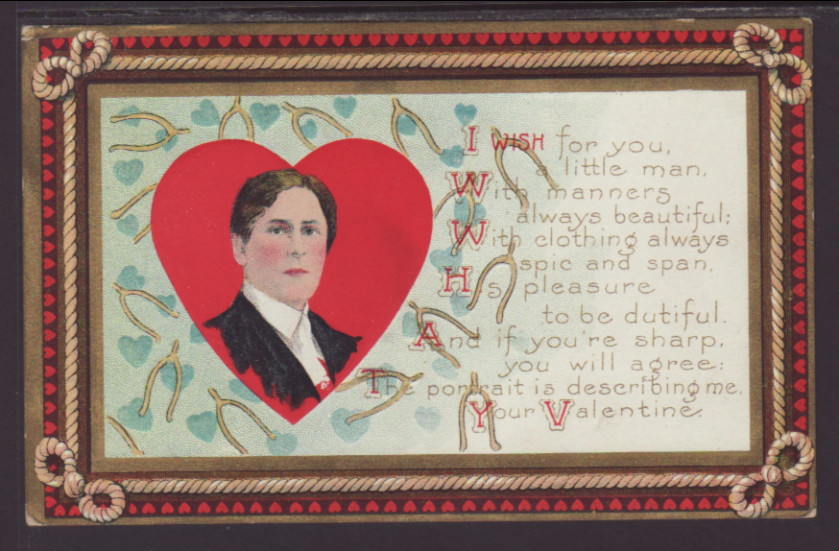 I WISH for you,
a little man,
With manners
always beautiful;
With clothing always
spic and span,
His pleasure
to be dutiful.
And if you're sharp,
you will agree:
The portrait is describing me,
Your Valentine.